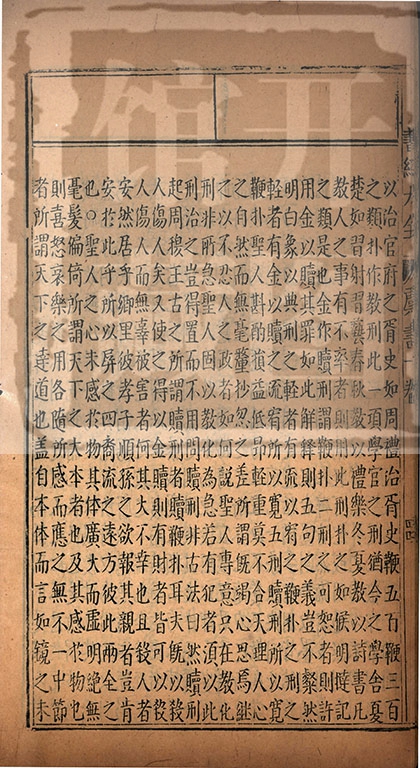 以治官府之胥吏如周禮治胥史鞭五百鞭三百
之類扑作教刑此一項學官之刑猶今之學舍夏
楚如習射習藝春秋教以禮樂冬夏教以詩書凡
教人之事有不率者則用此刑扑之如候明撻記
之類是也金作贖刑謂鞭扑二刑之可恕者則許
用金以贖其罪如此解釋則五句之義豈不粲然
明白象以典刑之輕者有流以宥之鞭扑之刑之
輕者有金以贖之流宥所以寬五刑贖刑所以寬
鞭扑聖人斟酌損益低昂輕重莫不合天理人心
之自然而無毫釐抄忽之差所謂既竭心思焉繼
之以不忍人之政者如何說聖人專意只在教化
刑非所急聖人固以教化為急若有犯者須以此
刑治之豈得置而不用問贖刑非古法曰然贖刑
起周穆王古之所謂贖刑者贖鞭扑耳夫既以殺
人傷人矣又使之得以金贖則有財者皆可以殺
人傷人而無辜被害者何其大不幸也且殺人者
安然居乎鄉里彼孝子順孫之欲報其親者豈肯
安於此乎所以屏之四裔流之遠方彼此兩全之
也○聖人之心未感於物其體廣大而虛明絶無
毫髮偏倚所謂天下之大本者也及其感於物也
則喜怒哀樂之用各隨所感而應之無不一中節
者所謂天下之達道也蓋自本體而言如鏡之未